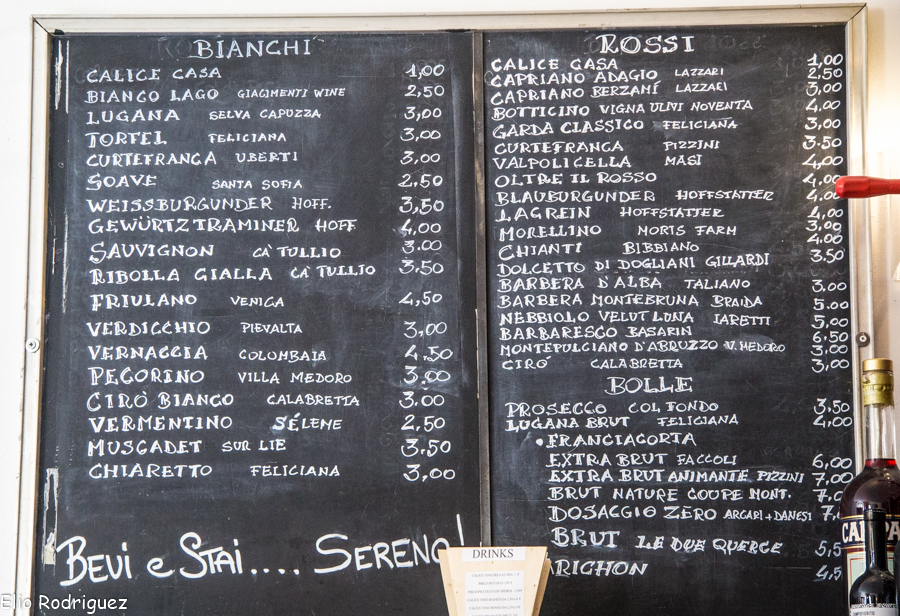 BIANCHI
CALICE CASA 1,00
BIANCO LAGO GIACIMENTI WINE 2,50
LUGANA SELVA CAPUZZA 3,00
TORFEL FELICIANA 3,00
CURTEFRANCA UBERTI 3,00
SOAVE SANTA SOFIA 2,50
WEISSBURGUNDER HOFF. 3,50
GEWÜRTZTRAMINER HOFF 4,00
SAUVIGNON CA' TULLIO 3.00
RIBOLLA GIALLA CA' TULLIO 3.50
FRIULANO VENICA 4,50
VERDICCHIO PIEVALTA 3,00
VERNACCIA COLOMBAIA 4.50
PECORINO VILLA MEDORO 3.00
CIRÒ BIANCO CALABRETTA 3.00
VERMENTINO SÉLEME 2,50
MUSCADET SUR LIE 3.50
CHIARETTO FELICIANA 3,00
BEVI e STAI.... SERENO!
ROSSI
CALICE CASA 1,00
CAPRIANO ADAGIO LAZZARI 2,50
CAPRIANO BERZAMÍ LAZZARI 3,00
BOTTICINO VIGNA ULIVI NOVENTA 4,00
GARDA CLASSICO FELICIANA 3,00
CURTEFRANCA PIZZINI 3.50
VALPOLICELLA MASI 4,00
OLTRE IL ROSSO 4,00
BLAUBURGUNDER HOFFSTATTER 4,00
LAGREIN HOFFSTATTER 4,00
MORELLINO MORIS FARM 3,00
CHIANTI BIBBIANO 4.00
DOLCETTO DI DOGLIANI GILLARDI 3.50
BARBERA D'ALBA TALIANO 3.00
BARBERA MONTEBRUNA BRAIDA 5.00
NEBBIOLO VELUT LUNA IARETTI 5,00
BARBARESCO BASARIN 6.50
MONTEPULCIANO D'ABRUZZO V. MEDORO 3,00
CIRO' CALABRETTA 3,00
BOLLE
PROSECCO COL FONDO 3,50
LUGANA BRUT FELICIANA 4,00
• FRANCIACORTA
EXTRA BRUT FACCOLI 6,00
EXTRA BRUT ANIMANTE PIZZINI 7,00
BRUT NATURE COUPE MONT. 7,0
DOSAGGIO ZERO ARCARI + DANESI 7,
BRUT LE DUE QUERCE 5,5
ARIGHON 4,5
DRINKS
CAMPA
Elio Rodriguez